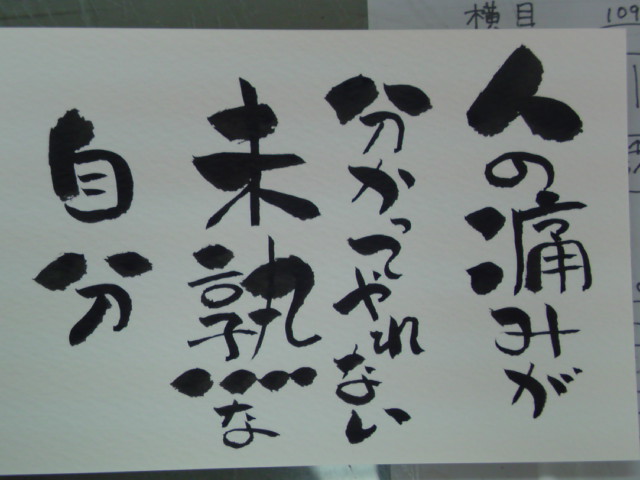 人の痛みが
分かってやれない
未熟な
自分
横目
109